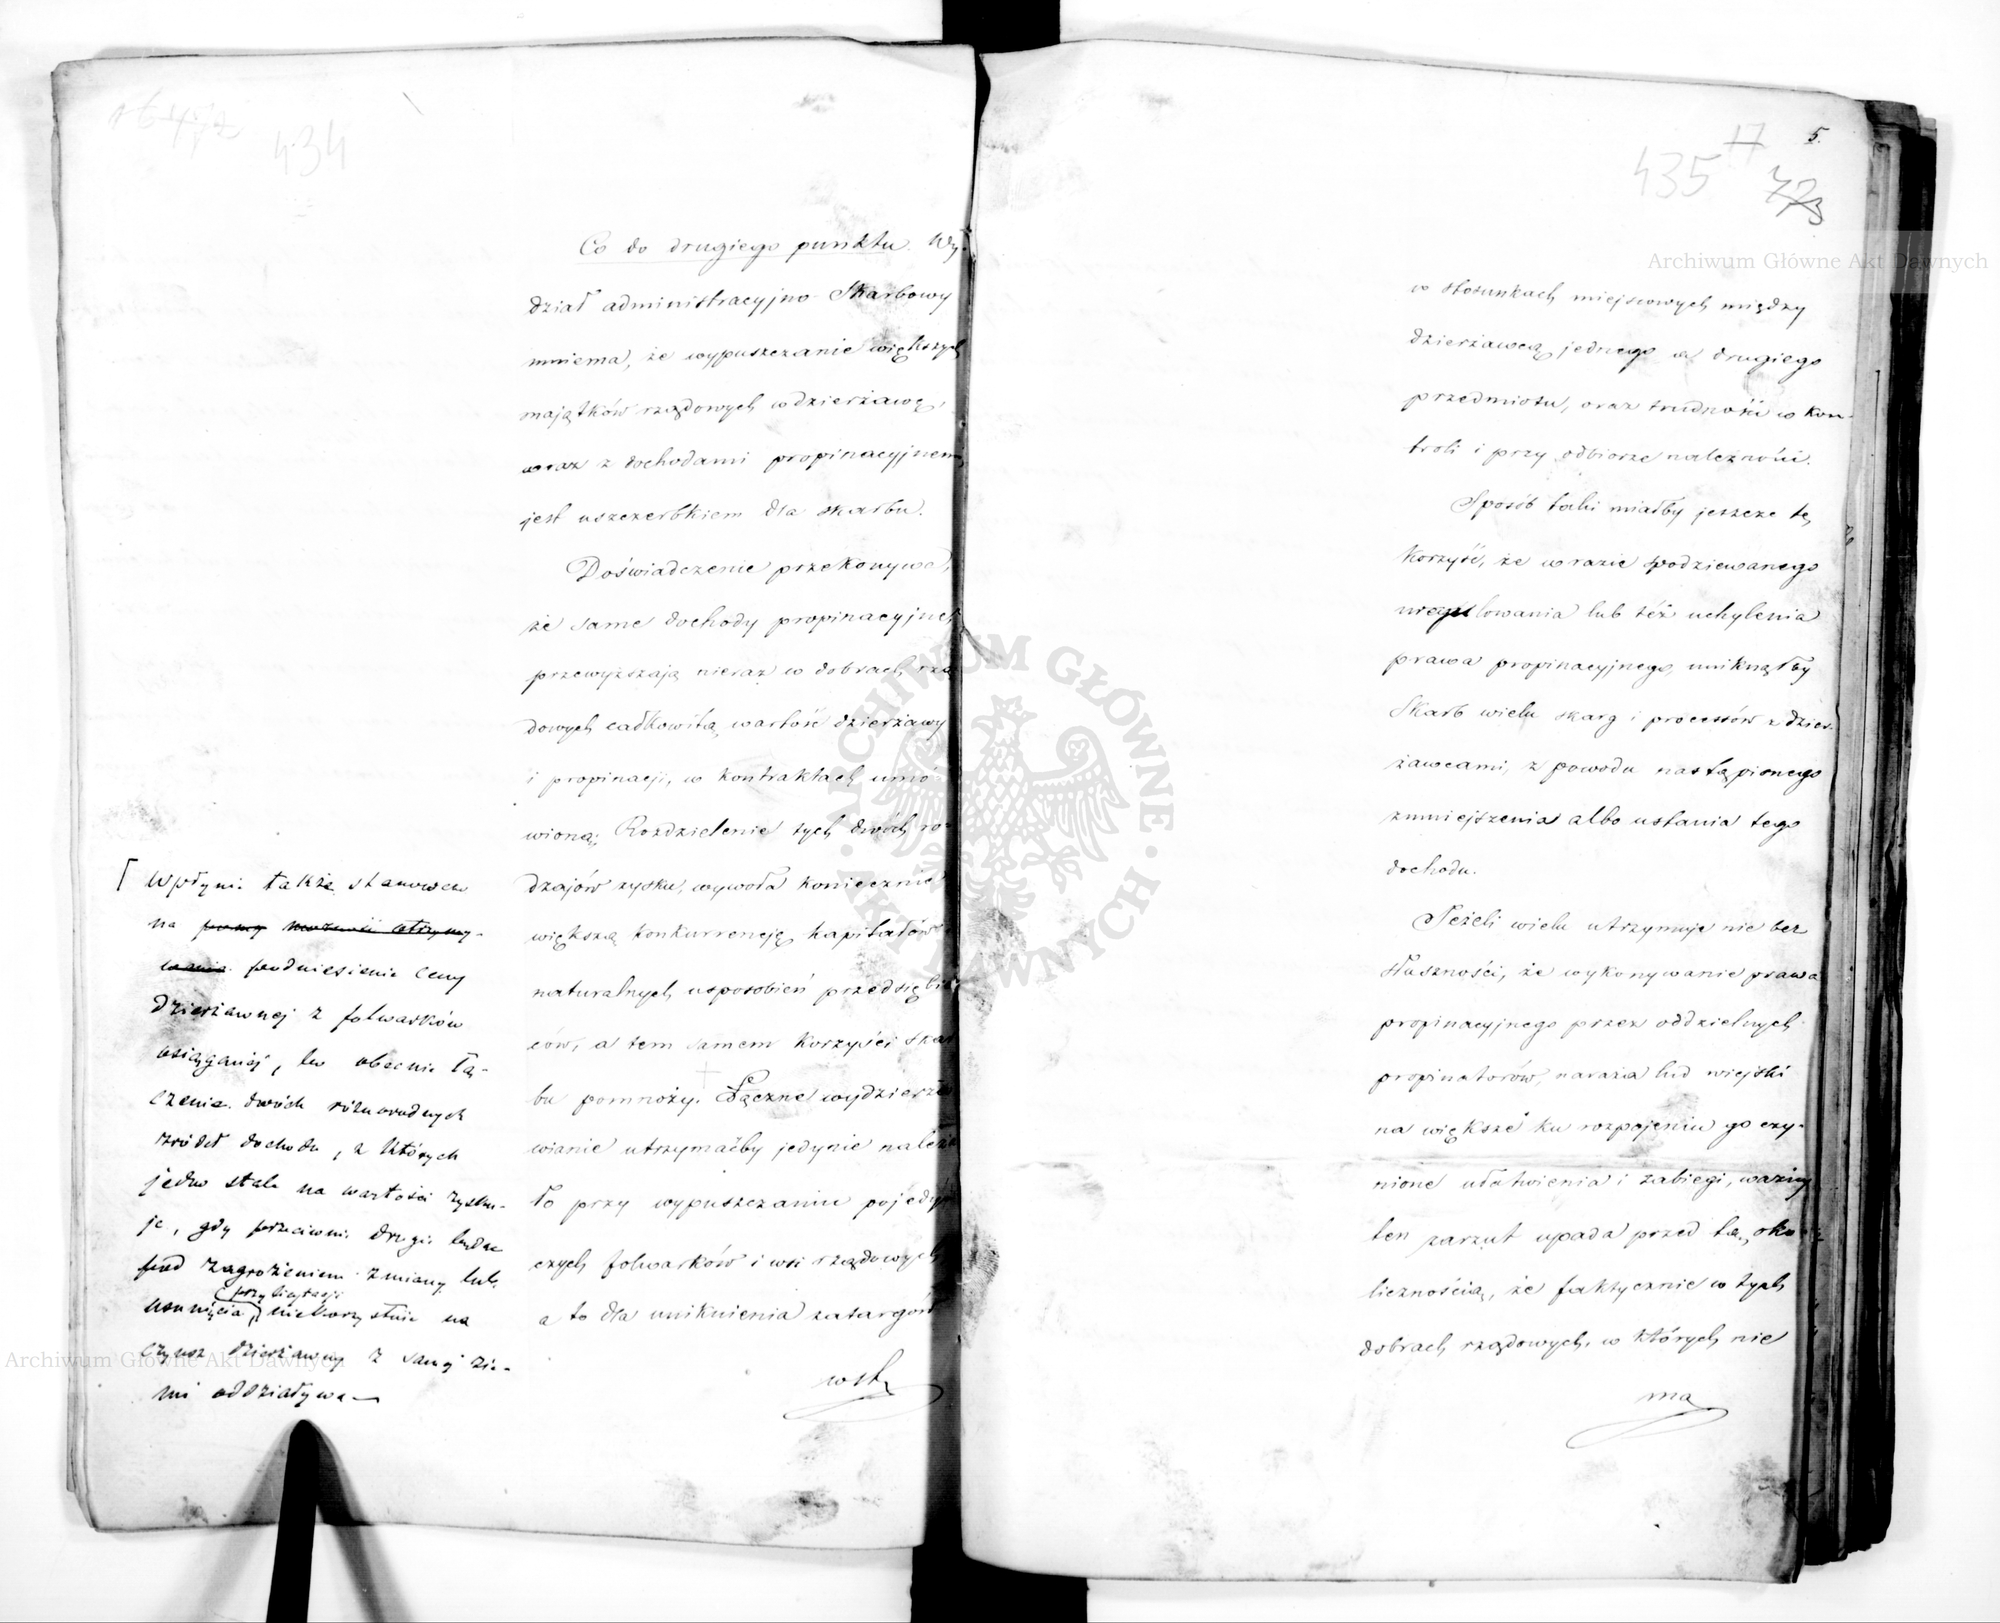 434
Co do drugiego punktu. Wy-
dział administracyjno-Skarbowy
mniema, że wypuszczanie większych
majątków rządowych w dzierżawę,
wraz z dochodami propinacyjnemi,
jest uszczerbkiem dla skarbu.
Doświadczenie przekonywa,
że same dochody propinacyjne
przewyższają nieraz w dobrach rzą
dowych całkowitą wartość dzierżawy
i propinacji, w kontraktach umó-
wioną; Rozdzielenie tych dwóch ro-
dzajów zysku, wywoła koniecznie
większą konkurrencję kapitałów
naturalnych usposobień przedsiębior
ców, a tem samem korzyści skar
bu pomnoży. Łączne wydzierża
wianie utrzymaćby jedynie należa
ło przy wypuszczaniu pojedyń
czych folwarków i wsi rządowych
a to dla uniknienia zatargów
w st
⌈ Wpłynie także stanowczo
na możność otrzymy-
wania podniesienie ceny
dzierżawnej z folwarków
osiąganéj, bo obecnie łą-
czenie dwóch różnorodnych
źródeł dochodu, z których
jedno stale na wartości zysku-
je, gdy przeciwnie drugie będąc
pod zagrożeniem zmiany lub
przy licytacji
usunięcia, niekorzystnie na
czynsz dzierżawny z samej zie-
mi oddziaływa
5.
17
435
73
w stosunkach miejscowych między
dzierżawcą jednego a drugiego
przedmiotu, oraz trudności w kon-
troli i przy odbiorze należności.
Sposób taki miałby jeszcze tę
korzyść, że w razie spodziewanego
uregulowania lub téż uchylenia
prawa propinacyjnego, uniknąłby
Skarb wielu skarg i processów z dzier-
żawcami, z powodu nastąpionego
zmniejszenia albo ustania tego
dochodu.
Jeżeli wielu utrzymuje nie bez
słuszności, że wykonywanie prawa
propinacyjnego przez oddzielnych
propinatorów, naraża lud wiejski
na większe ku rozpojeniu go czy-
nione ułatwienia i zabiegi, ważny
ten zarzut upada przed tą oko
licznością, że faktycznie w tych
dobrach rządowych, w których nie
ma
Archiwum Główne Akt Dawnych
Archiwum Główne Akt Dawnych
ARCHIWUM GŁÓWNE · AKT DAWNYCH ·